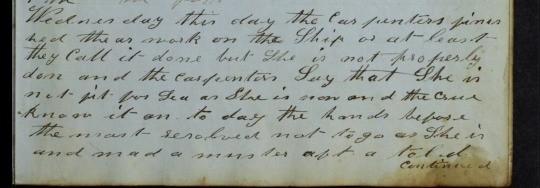 Wednesday this day the Carpenters finis
hed thear work on the Ship or at least
they Call it done but She is not properly
don and the Carpenters Say that She is
not fit for Sea as She is now and the Crue
know it an to day the hands before
the mast resolved not to go as She is
and mad a muster aft a told
Continued